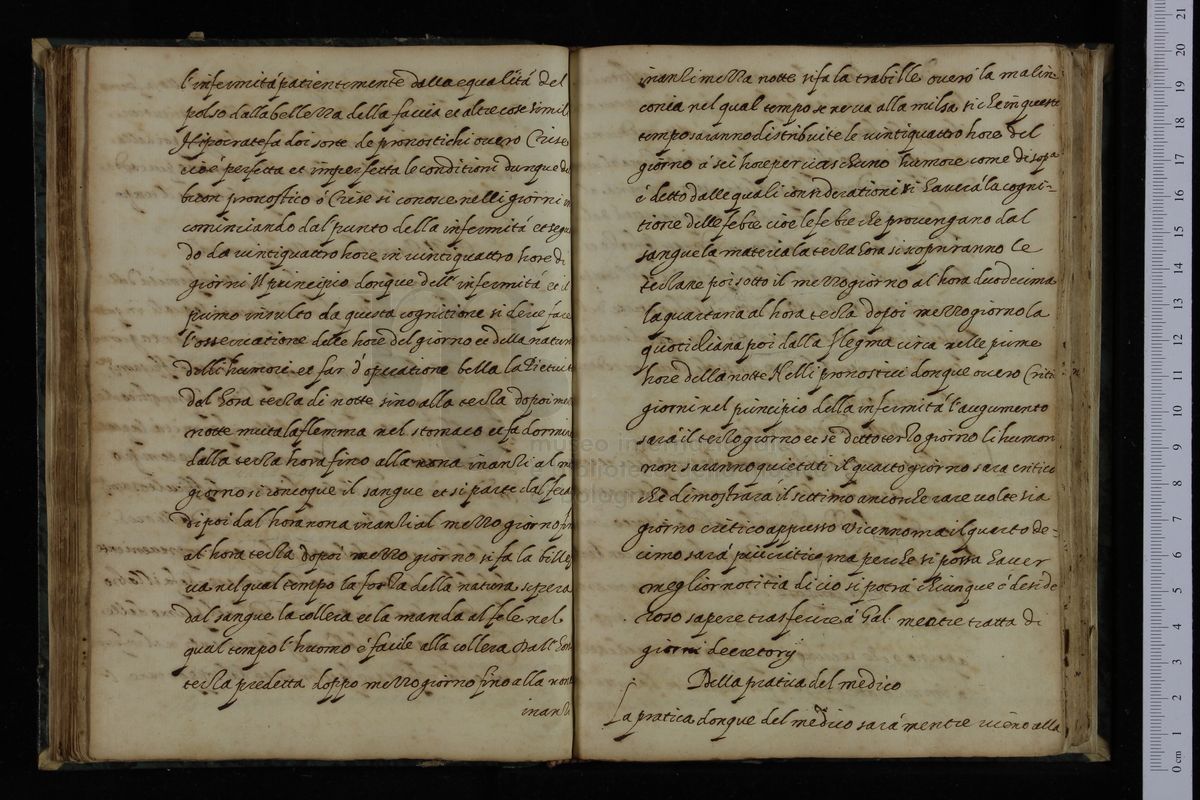 l'infermitá patientemente dalla equalitá del
polso dalla bellezza della faccia et altre cose simil
Hipocrate fa doi sorte de pronostichi overo Crise
cioé perfetta et imperfetta le conditioni dunque
buon pronostico ó Crise si conosce nelli giorni in
cominciando dal punto della infermitá et segu
do da vintiquattro hore in vintiquattro hore di
giorni Il principio donque dell' infermitá et
primo insulto da questa cognitione si deve fare
l'osservatione delle hore del giorno et della natura
delli humori et far d' operatione bella la
dal hora terza di notte sino alla terza dopoi
notte muta la flemma nel stomaco et fa dormire
dalla terza hora fino alla nona inanzi al me
giorno si concoque il sangue et si parte dal
dipoi dal hora nona inanzi al mezzo giorno fin
al hora terza dopoi mezzo giorno si fa la bille
va nel qual tempo la forza della natura separa
dal sangue la collera et la manda al fele nel
qual tempo l' huomo é facile alla collera Dall' hora
terza predetta doppo mezzo giorno fino alla nona
inanzi
inanzi mezza notte si fa la trabille overo la malin=
conia nel qual tempo se ne va alla milza si che in queste
tempo saranno distribuite le vintiquattro hore del
giorno á sei hore per ciaschuno humore come di sopa
é detto dalle quali considerationi si haverá la cogni=
tione delle febre cioe le febre che provengano dal
sangue la materia la terza hora si scopriranno le
terzane poi sotto il mezzo giorno al hora duodecima
la quartana al hora terza dopoi mezzo giorno la
quotidiana poi dalla flegma circa nelle prime
hore della notte Nelli pronostici donque overo Criti
giorni nel principio della infermitá l'augumento
sará il terzo giorno et se detto terzo giorno li humori
non saranno quietati il quarto giorno sara critico
che dimostrara il settimo ancorche rare volte sia
giorno critico appresso Vicenno ma il quarto de=
cimo sará piu critico ma perche si possa haver
meglior notitia di cio si potrá chiunque é deside
roso sapere trasferire á Gal. mentre tratta di
giorni decretory
Della pratica del medico
La pratica donque del medico sará mentre alla
museo internazionale
biblioteca
bologna
21 20 19 18 17 16 15 14 13 12 11 10 9 8 7 6 5 4 3 2 1 0 cm